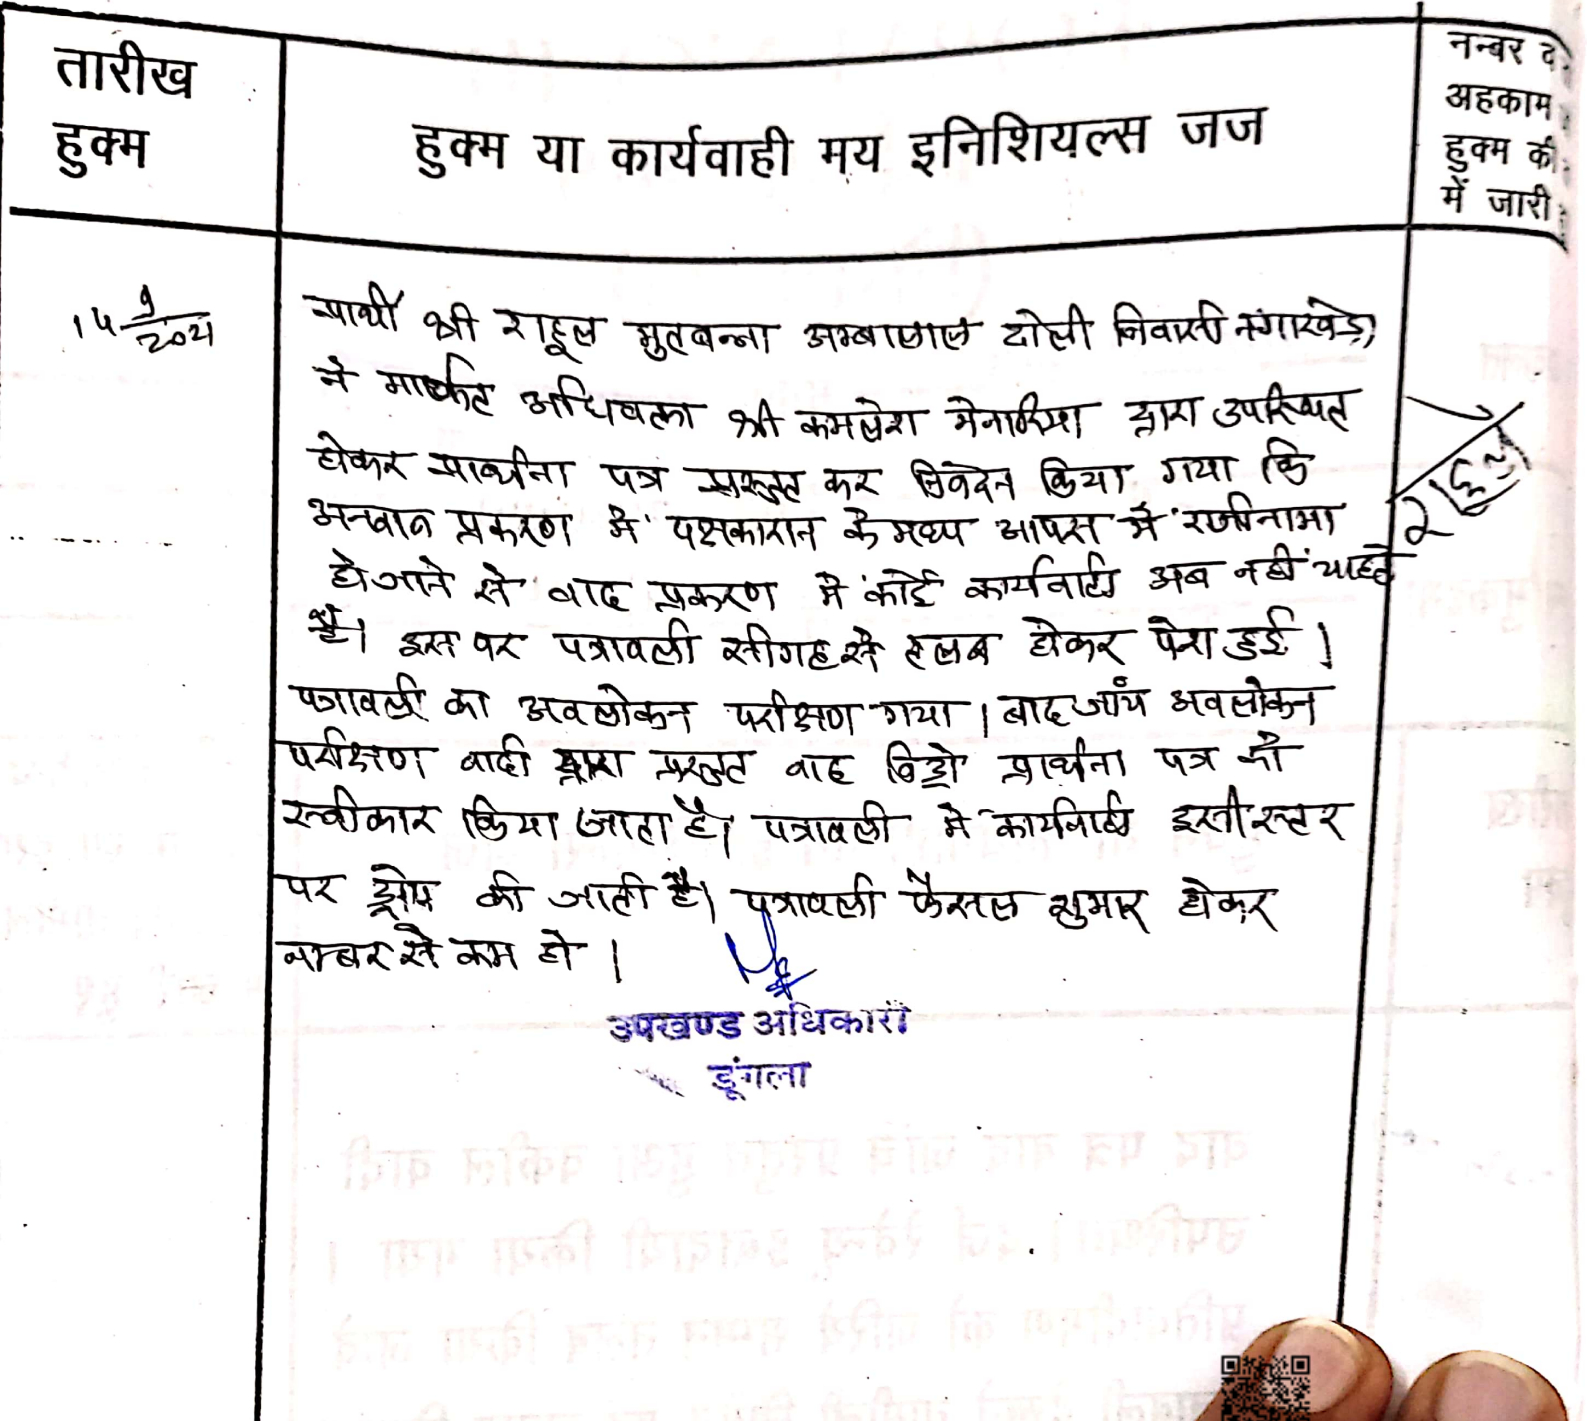 तारीख
हुक्म
हुक्म या कार्यवाही मय इनिशियल्स जज
नम्बर व
अहकाम
हुक्म की
में जारी
14 9/2021
प्रार्थी श्री राहूल मुतबन्ना अम्बालाल ढोली निवासी नंगाखेड़ा
ने मार्फत अधिवक्ता श्री कमलेश मेनारिया द्वारा उपस्थित
होकर प्रार्थना पत्र प्रस्तुत कर निवेदन किया गया कि
अनवान प्रकरण मे पक्षकारान के मध्य आपस मे राजीनामा
हो जाने से वाद प्रकरण मे कोई कार्यवाही अब नहीं चाहते
है। इस पर पत्रावली सीगह से तलब होकर पेश हुई।
पत्रावली का अवलोकन परीक्षण गया। बाद जाँच अवलोकन
परीक्षण वादी द्वारा प्रस्तुत वाद विड्रो प्रार्थना पत्र को
स्वीकार किया जाता है। पत्रावली मे कार्यवाही इसी स्तर
पर ड्रोप की जाती है। पत्रावली फैसल शुमार होकर
नम्बर से कम हो।
उपखण्ड अधिकारी
डूंगला